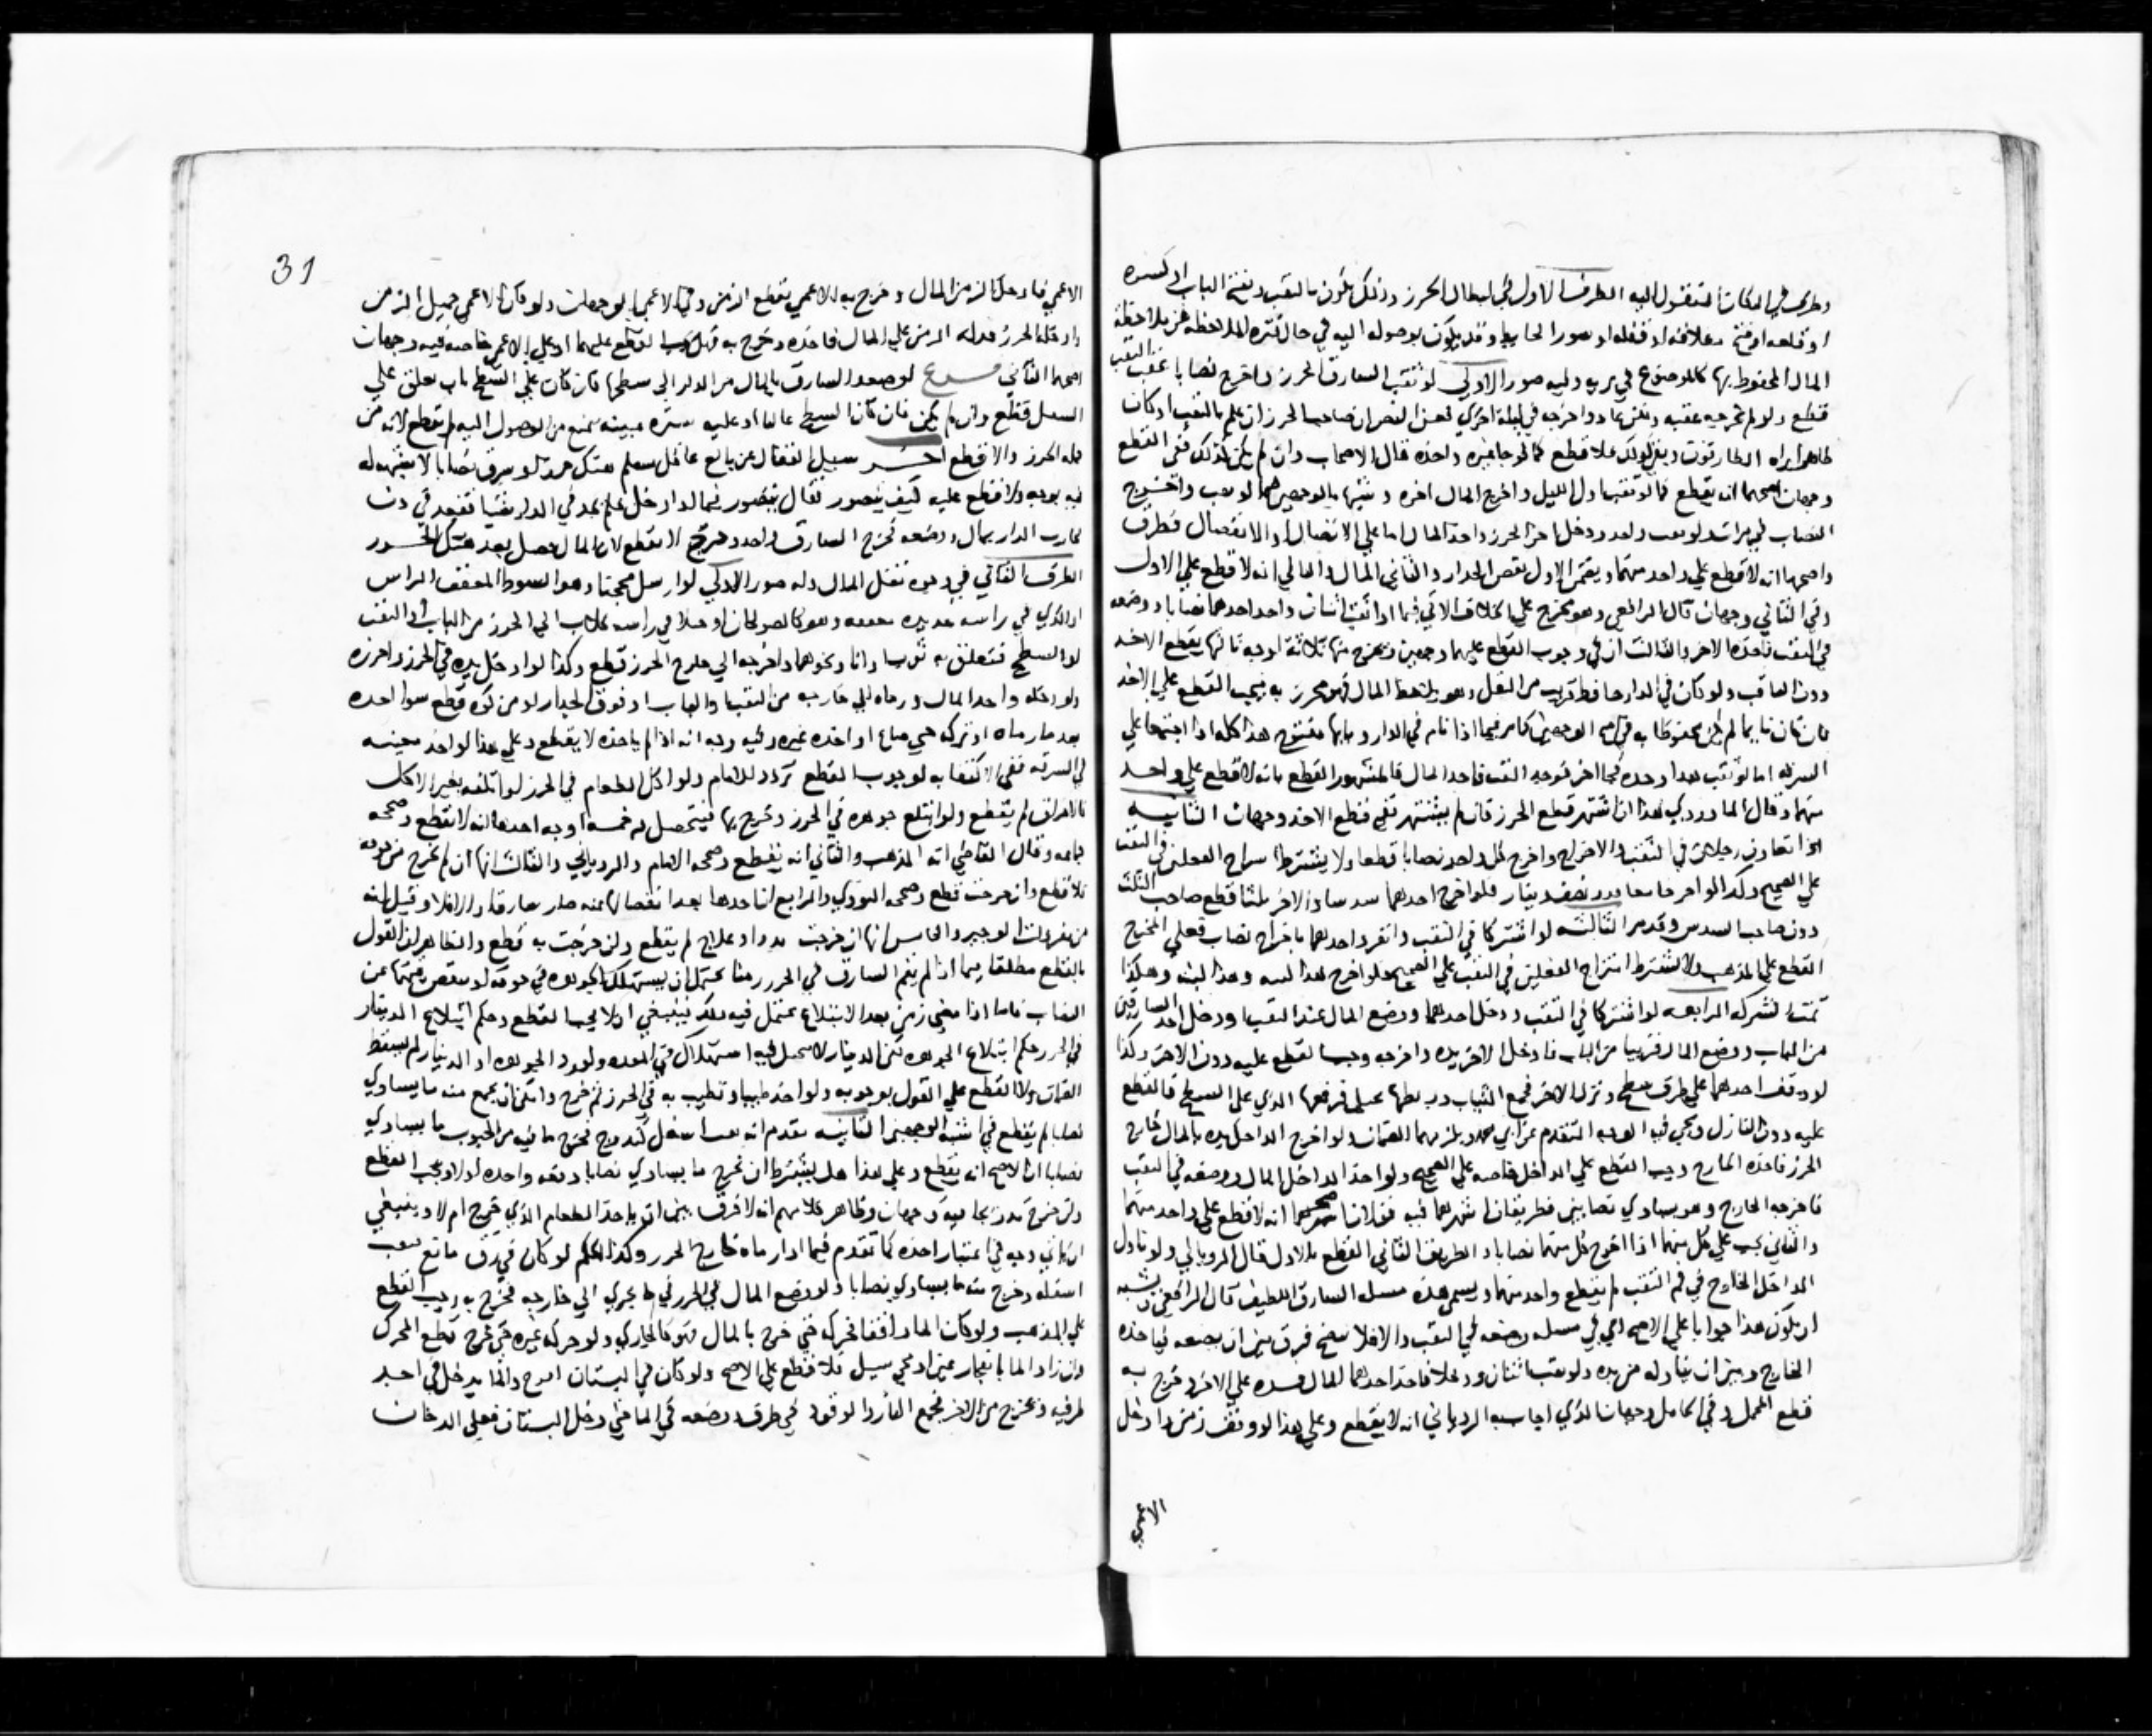 وطري في المكان المنقول اليه الطرف الاول في ابطال الحرز وذلك يكون بالنقب وبفتح الباب او كسره
او قلعه او فتح مغلاقه او قفله او تسور الحايط وقد يكون بوصوله اليه في حال فترة الملاحظه عن ملاحظة
المال المحفوظ بها كالموضوع في بريه وفيه صور الاولي لو نقب السارق الحرز واخرج نصابا عقب النقب
قطع ولو لم يخرجه عقبه وعاد واخرجه في ليلة اخري فعن النص ان صاحب الحرز ان علم بالنقب او كان
ظاهرا يراه الطارقون وبقي كذلك فلا قطع كما لو جا غيره واخذه قال الاصحاب وان لم يكن كذلك ففي القطع
وجهان اصحهما انه يقطع كما لو نقب اول الليل واخرج المال اخره وشبها بالوجهين فيما لو نقب واخرج
النصاب في مرات ولو نقب واحد ودخل اخر الحرز واخذ المال اما علي الاتصال او الانفصال فطرق
واصحها انه لا قطع علي واحد منهما ويضمن الاول نقص الجدار والثاني المال والثاني انه لا قطع علي الاول
وفي الثاني وجهان قال الرافعي وهو يخرج علي الخلاف الاتي فيما اذا نقب اثنان واخذ احدهما نصابا ووضعه
في النقب فاخذه الاخر والثالث ان في وجوب القطع عليهما وجهين ويخرج منها ثلاثة اوجه ثالثها يقطع الاخذ
دون الناقب ولو كان في الدار حافظ قريب من النقب وهو يلاحظ المال فهو محرز به فيجب القطع علي الاخذ
فان كان نايما لم يكن محفوظا به في اصح الوجهين كما مر فيما اذا نام في الدار وبابها مفتوح هذا كله اذا اجتمعا علي
السرقه اما لو نقب هذا وحده فجا اخر فوجد النقب فاخذ المال فالمشهور القطع بانه لا قطع علي واحد
منهما وقال الماوردي هذا ان اشتهر قطع الحرز فان لم يشتهر ففي قطع الاخذ وجهان الثانيه
اذا تعاون رجلان في النقب والاخراج واخرج كل واحد نصابا قطعا ولا يشترط امتزاج الفعلين في النقب
علي الصحيح وكذا لو اخرجا معا قدر نصف دينار فلو اخرج احدهما سدسا والاخر ثلثا قطع صاحب الثلث
دون صاحب السدس وقد مر الثالثه لو اشتركا في النقب وانفرد احدهما باخراج نصاب فعلي المخرج
القطع علي المذهب ولا يشترط امتزاج الفعلين في النقب علي الصحيح فلو اخرج هذا لبنه وهذا لبنه وهكذا
تمت الشركه الرابعه لو اشتركا في النقب ودخل احدهما ووضع المال عند النقب او دخل احد السارقين
من الباب ووضع المال قريبا من الباب فادخل الاخر يده واخرجه وجب القطع عليه دون الاخر وكذا
لو وقف احدهما علي طرف سطح ونزل الاخر فجمع الثياب وربطها بحبل فرفعها الذي علي السطح فالقطع
عليه دون النازل ويجي فيه الوجه المتقدم ويلزمهما الضمان ولو اخرج الداخل يده بالمال خارج
الحرز فاخذه الخارج وجب القطع علي الداخل خاصه علي الصحيح ولو اخذ الداخل المال ووضعه في النقب
فاخرجه الخارج وهو يساوي نصابين فطريقان اشهرهما فيه قولان اصحهما انه لا قطع علي واحد منهما
والثاني يجب علي كل منهما اذا اخرج كل منهما نصابا والطريق الثاني القطع بالاول قال الروياني ولو ناول
الداخل الخارج في فم النقب لم يقطع واحد منهما ويسمي هذه مسله السارق اللطيف قال الرافعي ويشبه
ان يكون هذا جوابا علي الاصح اي في مسله وضعه في النقب والا فلا يتضح فرق بين ان يضعه فياخذه
الخارج وبين ان يناوله من يده ولو نقب اثنان ودخلا فاخذ احدهما المال وشده علي الاخر وخرج به
قطع المحمل وفي الحامل وجهان الذي اجاب به الروياني انه لا يقطع وعلي هذا لو وقف زمن وادخل
الاعمي
31
الاعمي فادخل الزمن المال وخرج به الاعمي يقطع الزمن وفي الاعمي الوجهان ولو كان الاعمي حميل الزمن
وادخله الحرز فدله الزمن علي المال فاخذه وخرج به فهل يجب القطع عليهما او علي الاعمي خاصه فيه وجهان
اصحهما الثاني فرع لو صعد السارق بالمال من الدار الي سطحها فان كان علي السطح باب يغلق علي
السفل قطع وان لم يكن فان كان السطح عاليا او عليه ستره مبنيه تمنع من الوصول اليه لم يقطع لانه من
جمله الحرز والا قطع اخر سيل القفال عن بالغ عاقل مسلم هتك حرزا وسرق نصابا لا شبهه له
فيه بوجه ولا قطع عليه كيف يتصور فقال يتصور فيما لو دخل فلم يجد في الدار شيا فقعد في دن
فجا رب الدار بمال ووضعه فخرج السارق واخذه وخرج لا يقطع لان المال حصل بعد هتك الحرز
الطرف الثاني في وجوه نقل المال وله صور الاولي لو ارسل محجنا وهو السوط المعقف الراس
او الذي في راسه حديده معقفه وهو كالصولجان او حبلا في راسه كلاب الي الحرز من الباب او النقب
او السطح فتعلق به ثوب او انا ونحوهما واخرجه الي خارج الحرز قطع وكذا لو ادخل يده في الحرز واخرزه
ولو دخله واخذ المال ورماه الي خارجه من النقب او الباب او فوق الجدار او من كوه قطع سوا اخذه
بعد ما رماه او تركه حتي ضاع او اخذه غيره وفيه وجه انه اذا لم ياخذه لا يقطع وعلي هذا لو اخذه معينه
في السرقه ففي الاكتفا به لوجوب القطع تردد للامام ولو اكل الطعام في الحرز او اتلفه بغير الاكل
كالاحراق لم يقطع ولو ابتلع جوهره في الحرز وخرج بها فيتحصل فيه خمسه اوجه احدها انه لا يقطع وصححه
جماعه وقال القاضي انه المذهب والثاني انه يقطع وصححه الامام والروياني والثالث انها ان لم تخرج من جوفه
فلا قطع وان خرجت قطع وصححه النووي والرابع ان اخذها بعد انفصالها منه صار سارقا والا فلا وقيل انه
من مفردات الوجيز والخامس انها ان خرجت بدوا او علاج لم يقطع وان خرجت به قطع والظاهر ان القول
بالقطع مطلقا فيما اذا لم يقم السارق في الحرز زمنا يحتمل ان يستهلك الجوهره في جوفه او ينقص قيمتها عن
النصاب فاما اذا مضي زمن بعد الابتلاع يحتمل فيه ذلك فينبغي ان لا يجب القطع وحكم ابتلاع الدينار
في الحرز حكم ابتلاع الجوهره لكن الدينار لا يحصل فيه استهلاك في المعده ولو رد الجوهره او الدينار لم يسقط
الضمان ولا القطع علي القول بوجوبه ولو اخذ طيبا وتطيب به في الحرز ثم خرج وامكن ان يجمع منه ما يساوي
نصابا لم يقطع في اشبه الوجهين الثانيه تقدم انه لو نقب اسفل كندوج فخرج ما فيه من الحبوب ما يساوي
نصابا ان الاصح انه يقطع وعلي هذا هل يشترط ان يخرج ما يساوي نصابا دفعه واحده او لا ويجب القطع
وان خرج مدرجا فيه وجهان وظاهر كلامهم انه لا فرق بين ان ياخذ الطعام الذي خرج ام لا وينبغي
ان ياتي وجه في اعتبار اخذه كما تقدم فيما اذا رماه خارج الحرز وكذا الحكم لو كان في زق مايع فنقب
اسفله وخرج منه ما يساوي نصابا ولو وضع المال في الحرز في ما يجري الي خارجه فخرج به وجب القطع
علي المذهب ولو كان الما راكدا فحركه حتي خرج بالمال فهو كالجاري ولو حركه غيره حتي خرج قطع المحرك
وان زاد الما بانفجار عين او مجي سيل فلا قطع علي الاصح ولو كان في البستان ابرج والما يدخل في احد
طرفيه ويخرج من الاخر فجمع النار والوقود في طرف ووضعه في الما حتي دخل البستان فعلي الدخان